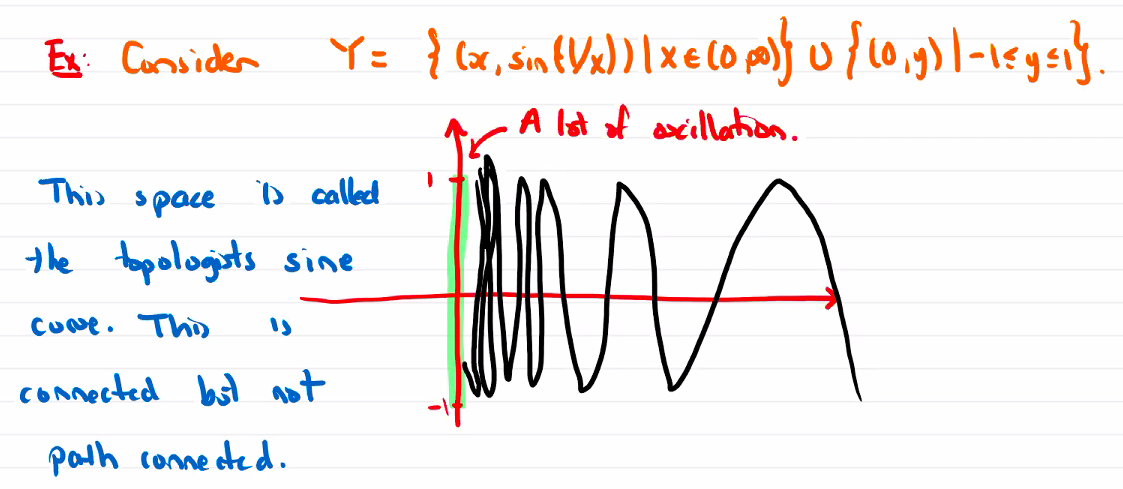 Ex: Consider Y = { (x, sin(1/x)) | x ∈ (0,∞)} ∪ { (0,y) | -1 ≤ y ≤ 1}.
A lot of oscillation.
1
This space is called
the topologists sine
curve. This is
connected but not
-1
path connected.